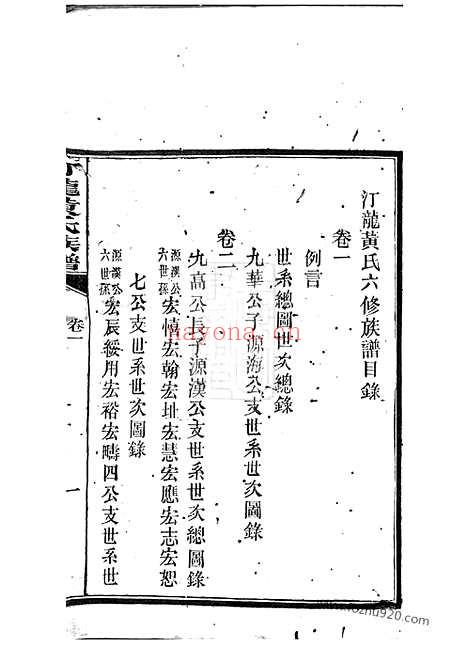 汀龍黃氏六修族譜目錄
卷一
例言
世系總圖世次總錄
九華公子源海公支世系世次圖錄
卷二
九高公長子源漢公支世系世次總圖錄
源漢公六世孫宏憤宏翰宏址宏慧宏應宏志宏恕
七公支世系世次圖錄
源漢公六世孫宏辰綏用宏裕宏疇四公支世系世
汀龍黃氏族譜
卷一
一
hayona.cn
www.fozhu920.com